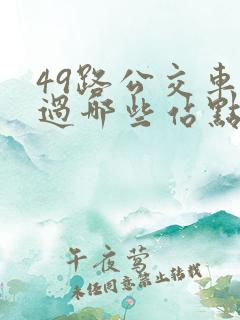 49路公交車
過哪些佔點
午夜莺
未经同意禁止转载